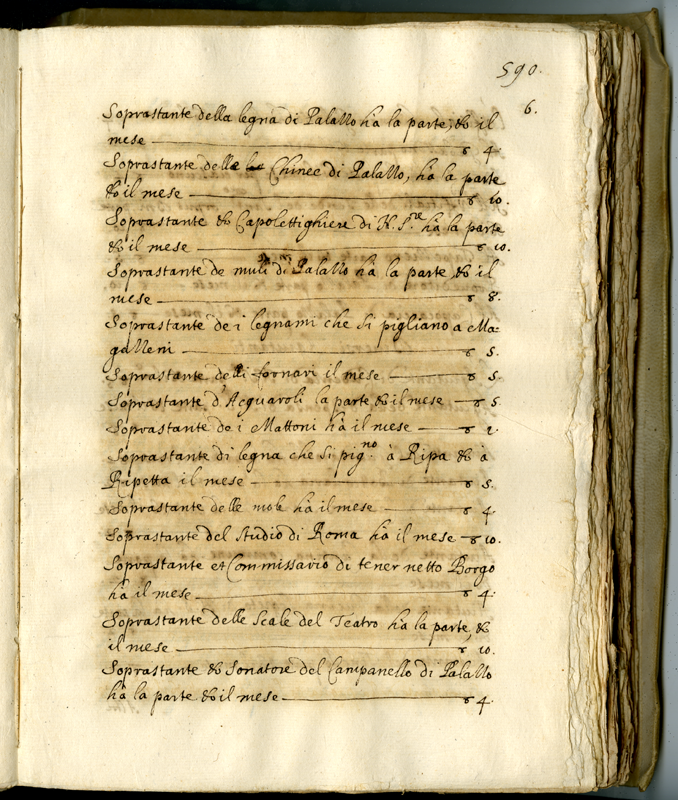 590.
6.
Soprastante della legna di Palazzo hà la parte, & il
mese — ▽ 4.
Soprastante delle Chinee di Palazzo, hà la parte
& il mese — ▽ 10.
Soprastante & Capolettighiere di N. S.re hà la parte
& il mese — ▽ 10.
Soprastante de muli di Palazzo hà la parte, & il
mese — ▽ 8.
Soprastante de i legnami che si pigliano a Ma:
gazzeni — ▽ 5.
Soprastante delli fornari il mese — ▽ 5.
Soprastante d'Acquaroli la parte & il mese — ▽ 5.
Soprastante de i Mattoni hà il mese — ▽ 2.
Soprastante di legna che si pig.no à Ripa & à
Ripetta il mese — ▽ 5.
Soprastante delle mole hà il mese — ▽ 4.
Soprastante del studio di Roma hà il mese — ▽ 10.
Soprastante et Commissario di tener netto Borgo
hà il mese — ▽ 4.
Soprastante delle Scale del Teatro hà la parte, &
il mese — ▽ 10.
Soprastante & Sonatore del Campanello di Palazzo
hà la parte & il mese — ▽ 4.